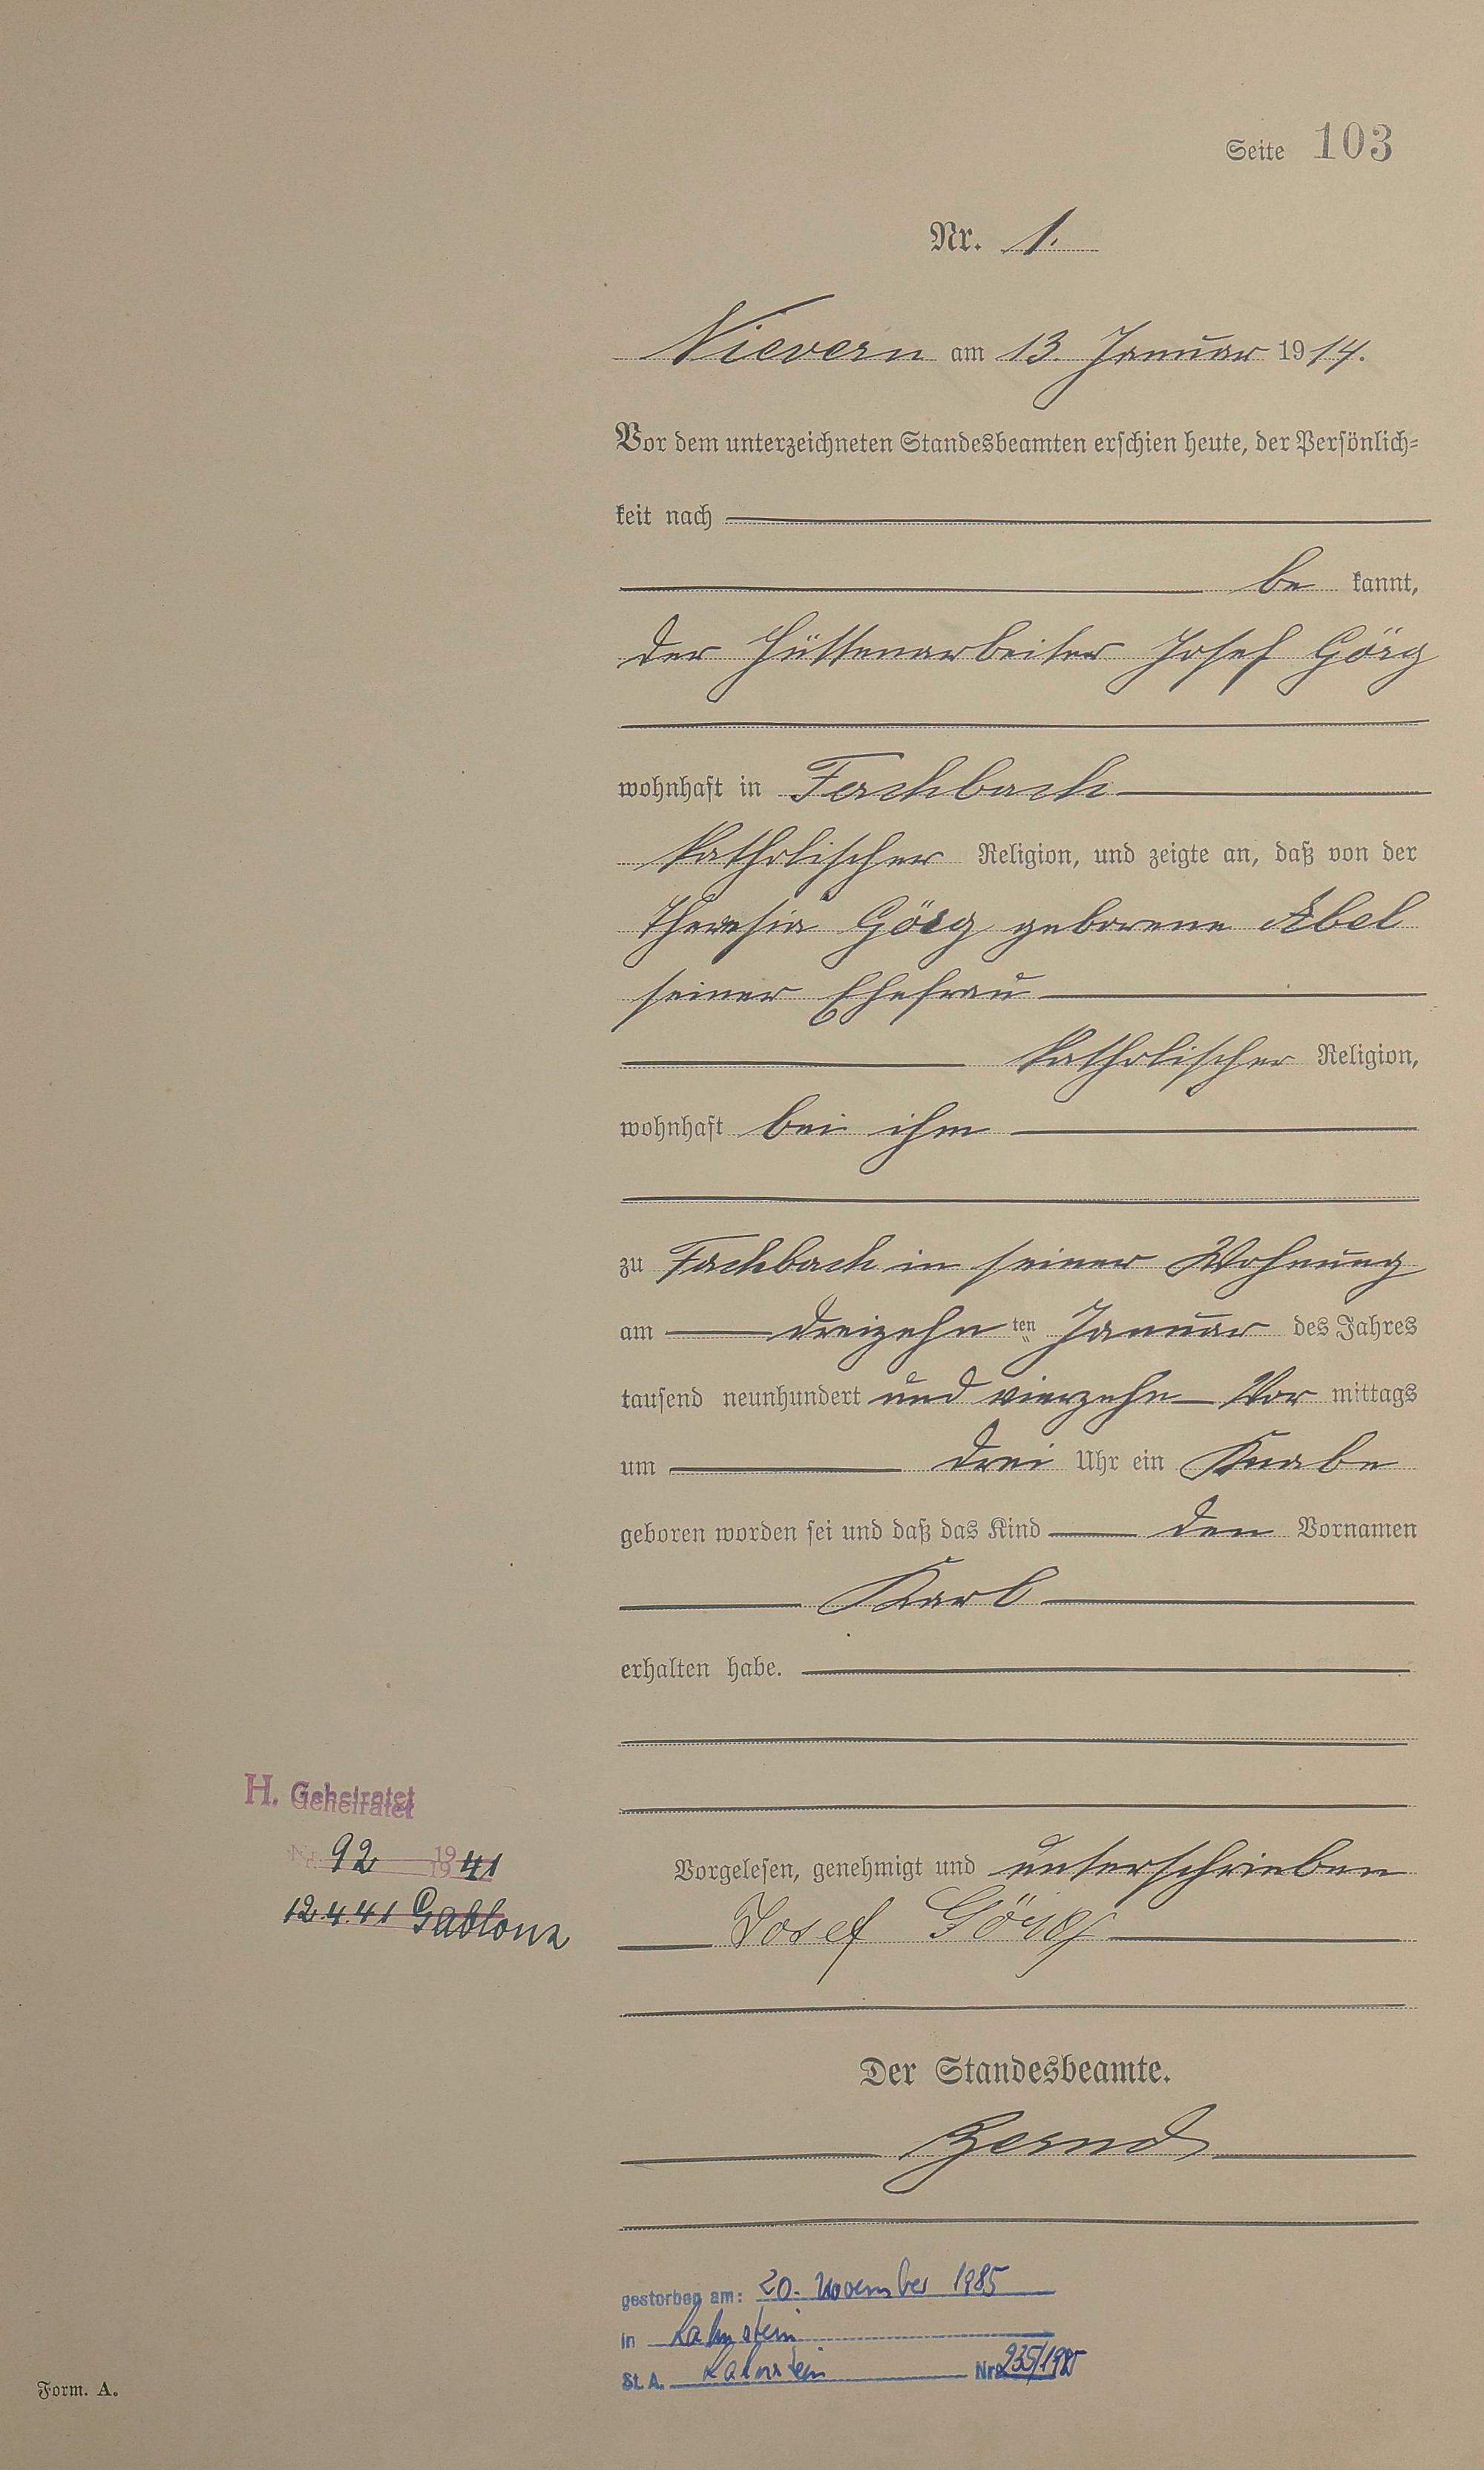 Seite 103
Nr. 1.
Nievern am 13. Januar 1914.
Vor dem unterzeichneten Standesbeamten erschien heute, der Persönlich-
keit nach
be kannt,
der Hüttenarbeiter Josef Görg
wohnhaft in Fachbach
katholischer Religion, und zeigte an, daß von der
Theresia Görg geborene Abel
seiner Ehefrau
katholischer Religion,
wohnhaft bei ihm
zu Fachbach in seiner Wohnung
am dreizehn ten Januar des Jahres
tausend neunhundert und vierzehn Vor mittags
um drei Uhr ein Knabe
geboren worden sei und daß das Kind den Vornamen
Karl
erhalten habe.
H. Geheiratet
Nr. 92 1941
12.4.41 Gablonz
Vorgelesen, genehmigt und unterschrieben
Josef Görg
Der Standesbeamte.
gestorben am: 20. November 1985
in Lahnstein
St. A. Lahnstein Nr. 235/1985
Form. A.